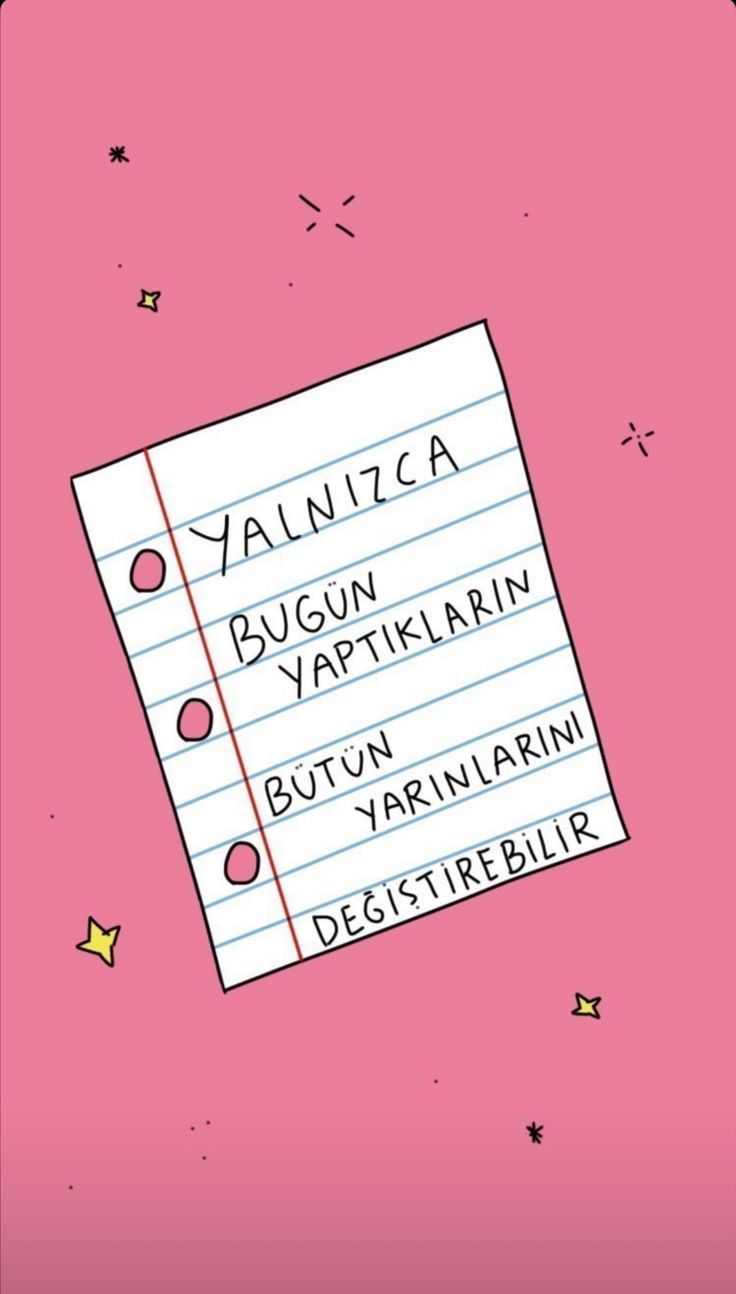 YALNIZCA
BUGÜN
YAPTIKLARIN
BÜTÜN
YARINLARINI
DEĞİŞTİREBİLİR